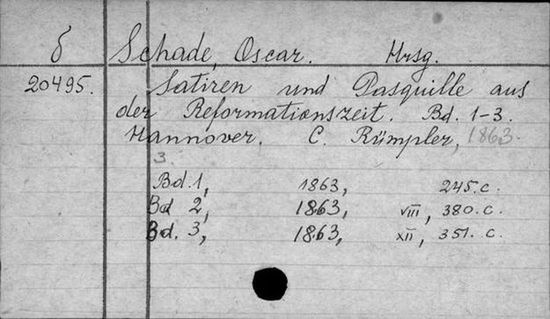 б Schade, Oscar. Hrsg.
20495. Satiren und Pasquille aus
der Reformationszeit. Bd. 1-3.
Hannover. C. Rümpler, 1863.
3.
Bd. 1, 1863, 245.c.
Bd 2, 1863, VIII, 380.c.
Bd. 3, 1863, XII, 351.c.